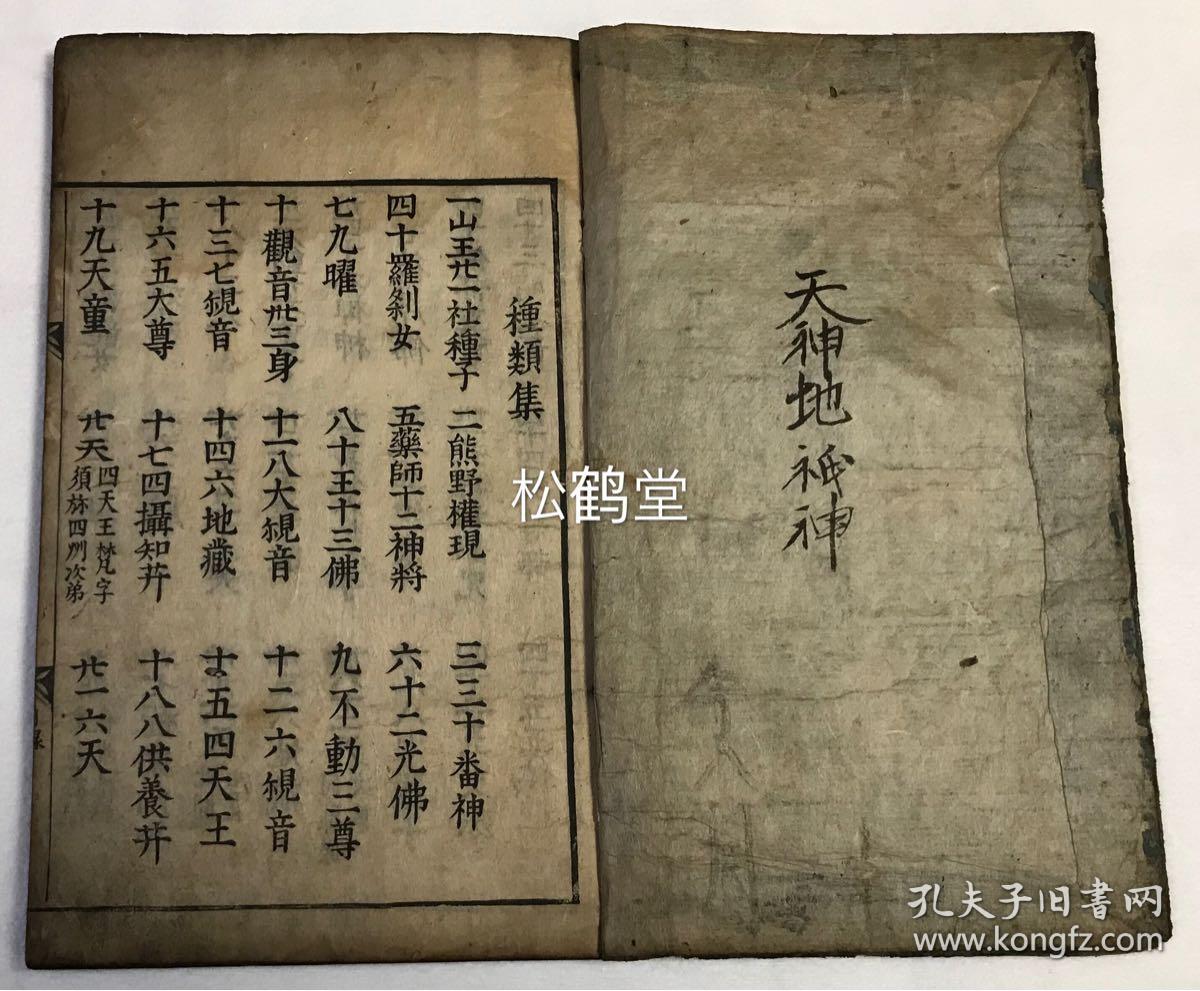 天神地祇神
種類集
一山王廿一社種子 二熊野權現 三三十番神
四十羅刹女 五藥師十二神将 六十二光佛
七九曜 八十王十三佛 九不動三尊
十觀音卅三身 十一八大覌音 十二六覌音
十三七覌音 十四六地藏 十五四天王
十六五大尊 十七四攝知菩 十八八供養菩
十九天童 廿天四天王梵字須弥四州次第 廿一六天
松鹤堂
孔夫子旧书网
www.kongfz.com